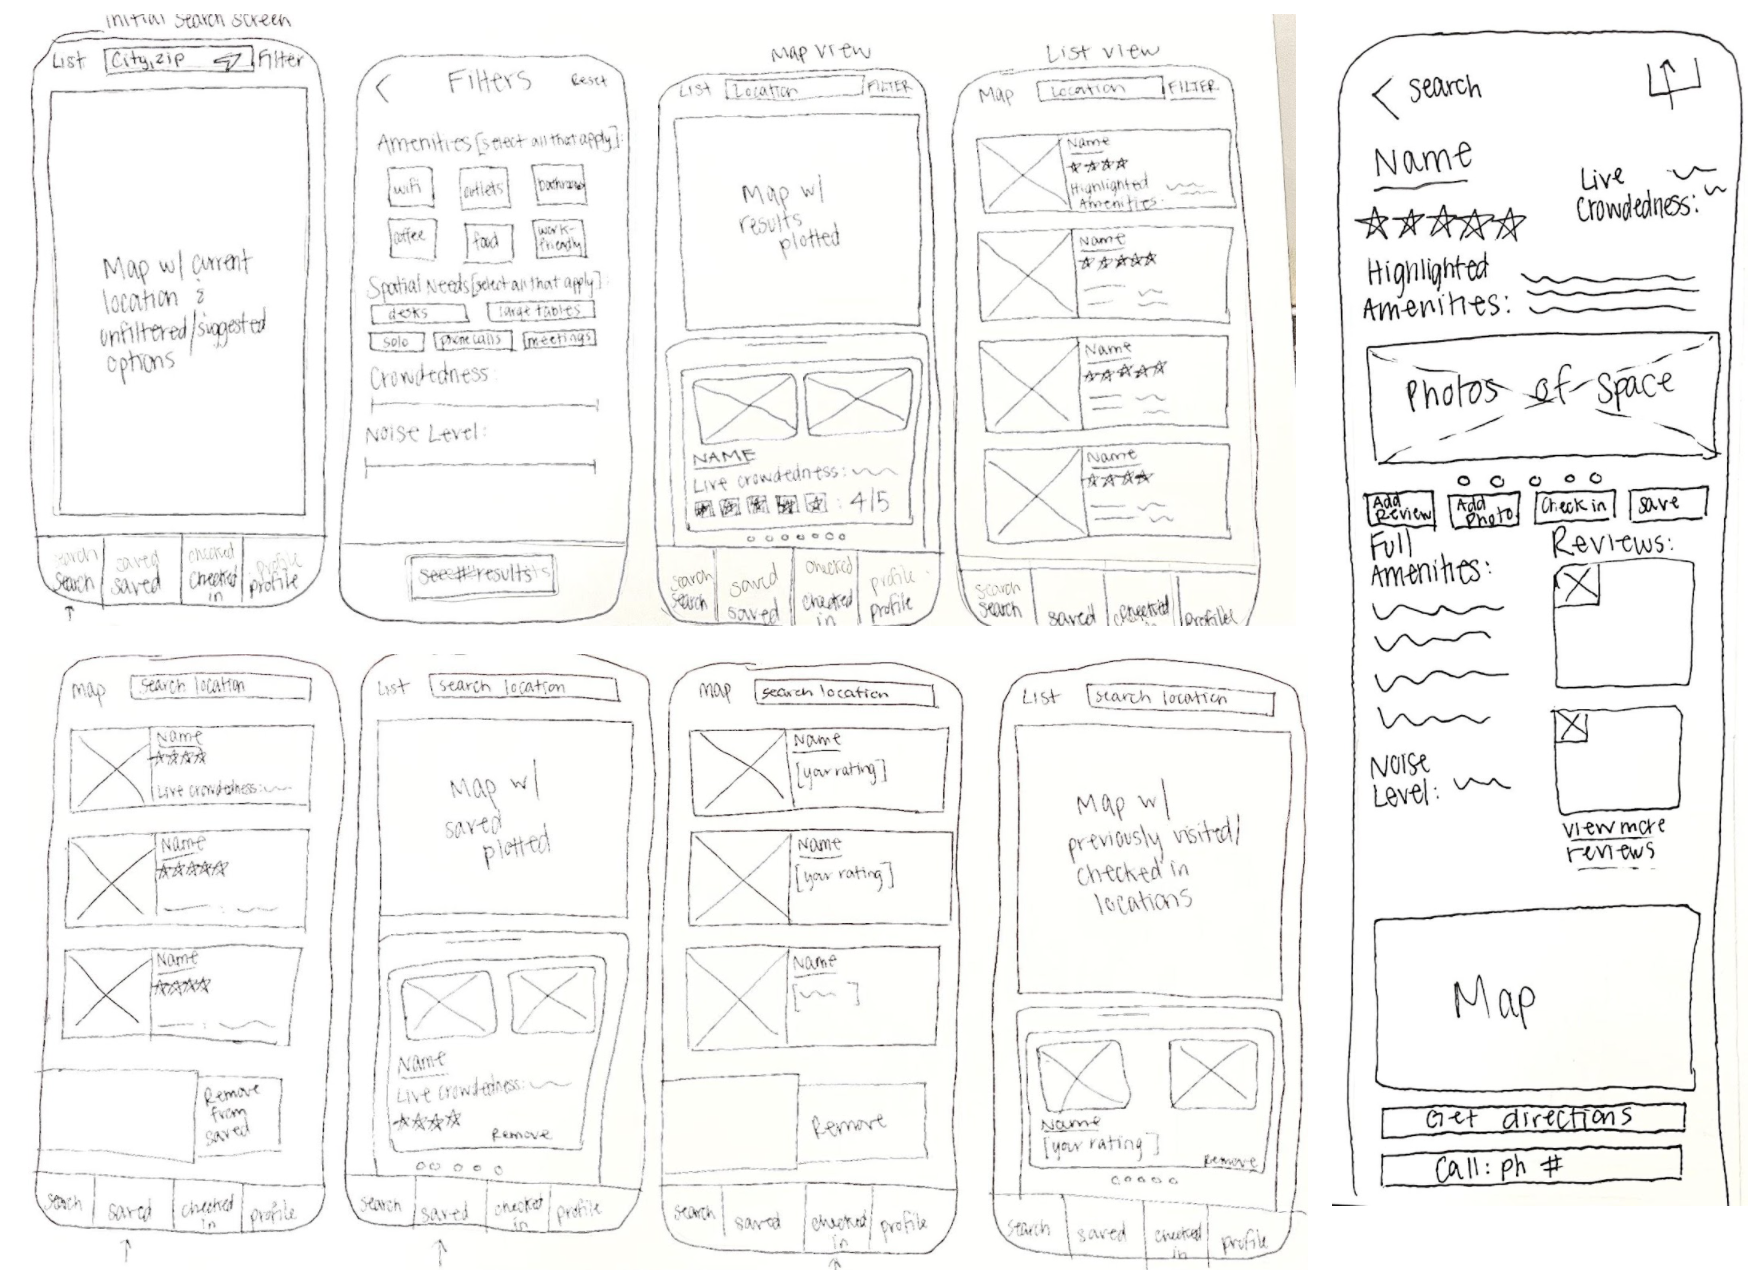 Initial Search Screen
List
City, zip
Filter
Map w/ current
location &
unfiltered/suggested
options
search
saved
checked
profile
search
saved
checked
in
profile
Filters
Reset
Amenities [select all that apply]:
wifi
outlets
bathroom
coffee
food
work-
friendly
Spatial Needs [select all that apply]:
desks
large tables
solo
phone calls
meetings
Crowdedness:
Noise Level:
see # results
Map view
List
Location
FILTER
Map w/
results
plotted
NAME
Live crowdedness:
: 4/5
search
saved
checked
profile
search
saved
checked
in
profile
List view
Map
Location
FILTER
Name
Highlighted
Amenities:
Name
Name
Name
search
search
saved
checked
in
profile
Map
search location
Name
Live crowdedness:
Name
Name
Remove
from
saved
search
saved
checked
in
profile
List
search location
Map w/
saved
plotted
Name
Live crowdedness:
Remove
search
saved
checked
in
profile
Map
search location
Name
[your rating]
Name
[your rating]
Name
Remove
search
saved
checked
in
profile
List
search location
Map w/
previously visited/
checked in
locations
Name
[your rating]
Remove
search
saved
checked
in
profile
search
Name
Live
Crowdedness:
Highlighted
Amenities:
Photos of Space
Add
Review
Add
Photo
Check in
save
Full
Amenities:
Reviews:
Noise
Level:
view more
reviews
Map
Get directions
Call: ph #